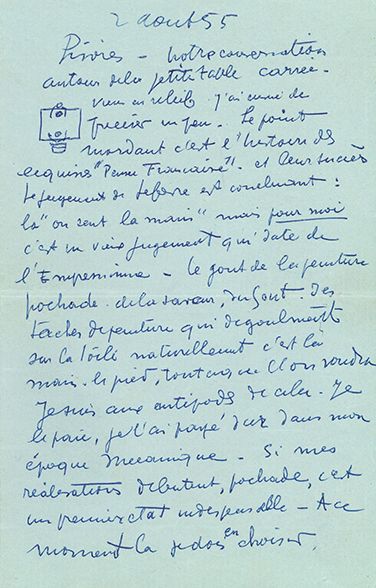 2 aout 55
notre conversation
autour de la petite table carrée -
j'ai envie de
préciser un peu. Le point
mordant c'est l'histoire des
et leur succès
le jugement de est concluant :
là "on sent la main" mais pour moi
c'est un vieux jugement qui date de
l' - le gout de la peinture
pochade. de la saveur, du gout. Des
taches de peinture qui degoulinent
sur la toile naturellement c'est la
main. le pied, tout ce que l'on voudra
Je suis aux antipodes de cela. Je
le paie, je l'ai payé dans mon
époque mecanique - Si mes
réalisations debutent, pochade, c'est
un premier etat indispensable - A ce
moment la je dois en choisir,